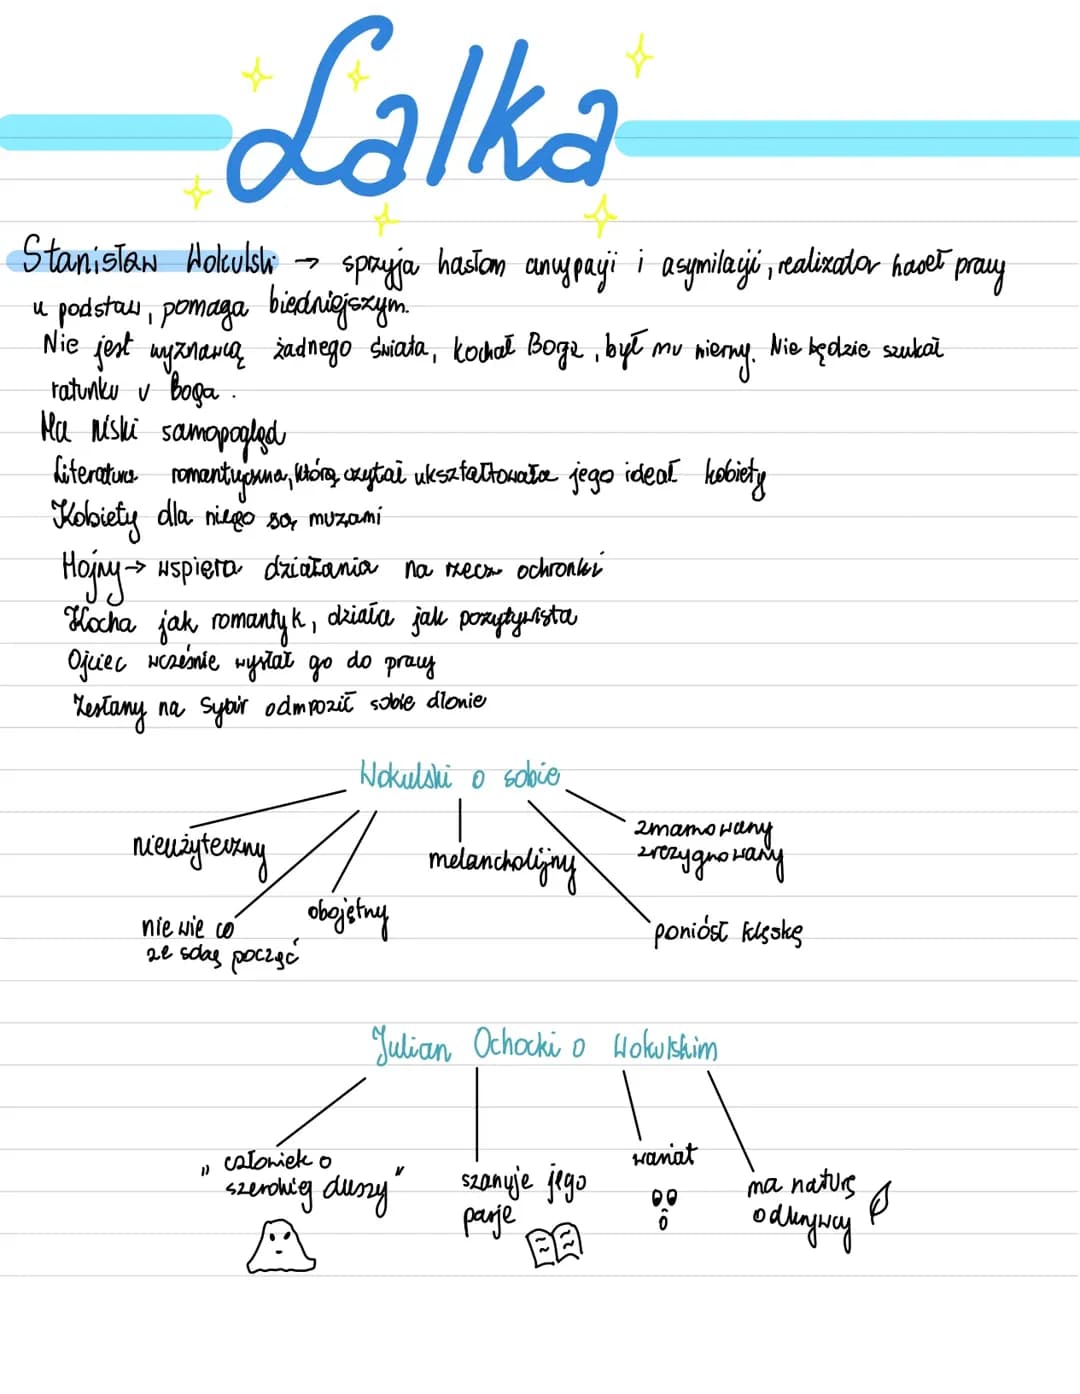 Lalka
Stanisław Wokulski → sprzyja hasłom emancypacji i asymilacji, realizator haseł pracy
u podstaw, pomaga biedniejszym.
Nie jest wyznawcą żadnego świata, kochał Boga, był mu wierny. Nie będzie szukał
ratunku u Boga.
Ma niski samopogląd
Literatura romantyczna, którą czytał ukształtowała jego ideał kobiety
Kobiety dla niego są muzami
Hojny → wspiera działania na rzecz ochronki
Kocha jak romantyk, działa jak pozytywista
Ojciec wcześnie wysłał go do pracy
Zesłany na Sybir odmroził sobie dłonie
Wokulski o sobie
nieużyteczny
nie wie co
ze sobą począć
obojętny
melancholijny
poniósł klęskę
zmarnowany
zrezygnowany
Julian Ochocki o Wokulskim
„człowiek o
szerokiej duszy"
szanuje jego
pasje
wariat
ma naturę
odkrywcy